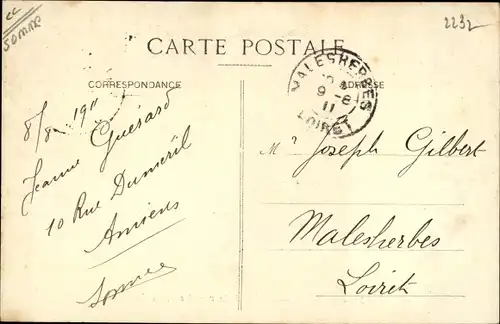 cc
SOMME
2232
CARTE POSTALE
CORRESPONDANCE
ADRESSE
MALESHERBES
9-8
11
LOIRET
8/8 1911
Jeanne Guérard
10 Rue Dumeril
Amiens
Somme
Mr Joseph Gilbert
Malesherbes
Loiret